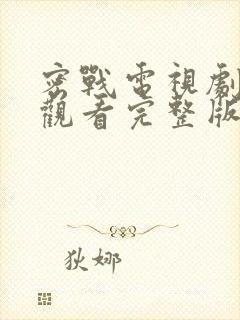 密戰電視劇
觀看完整版
狄娜